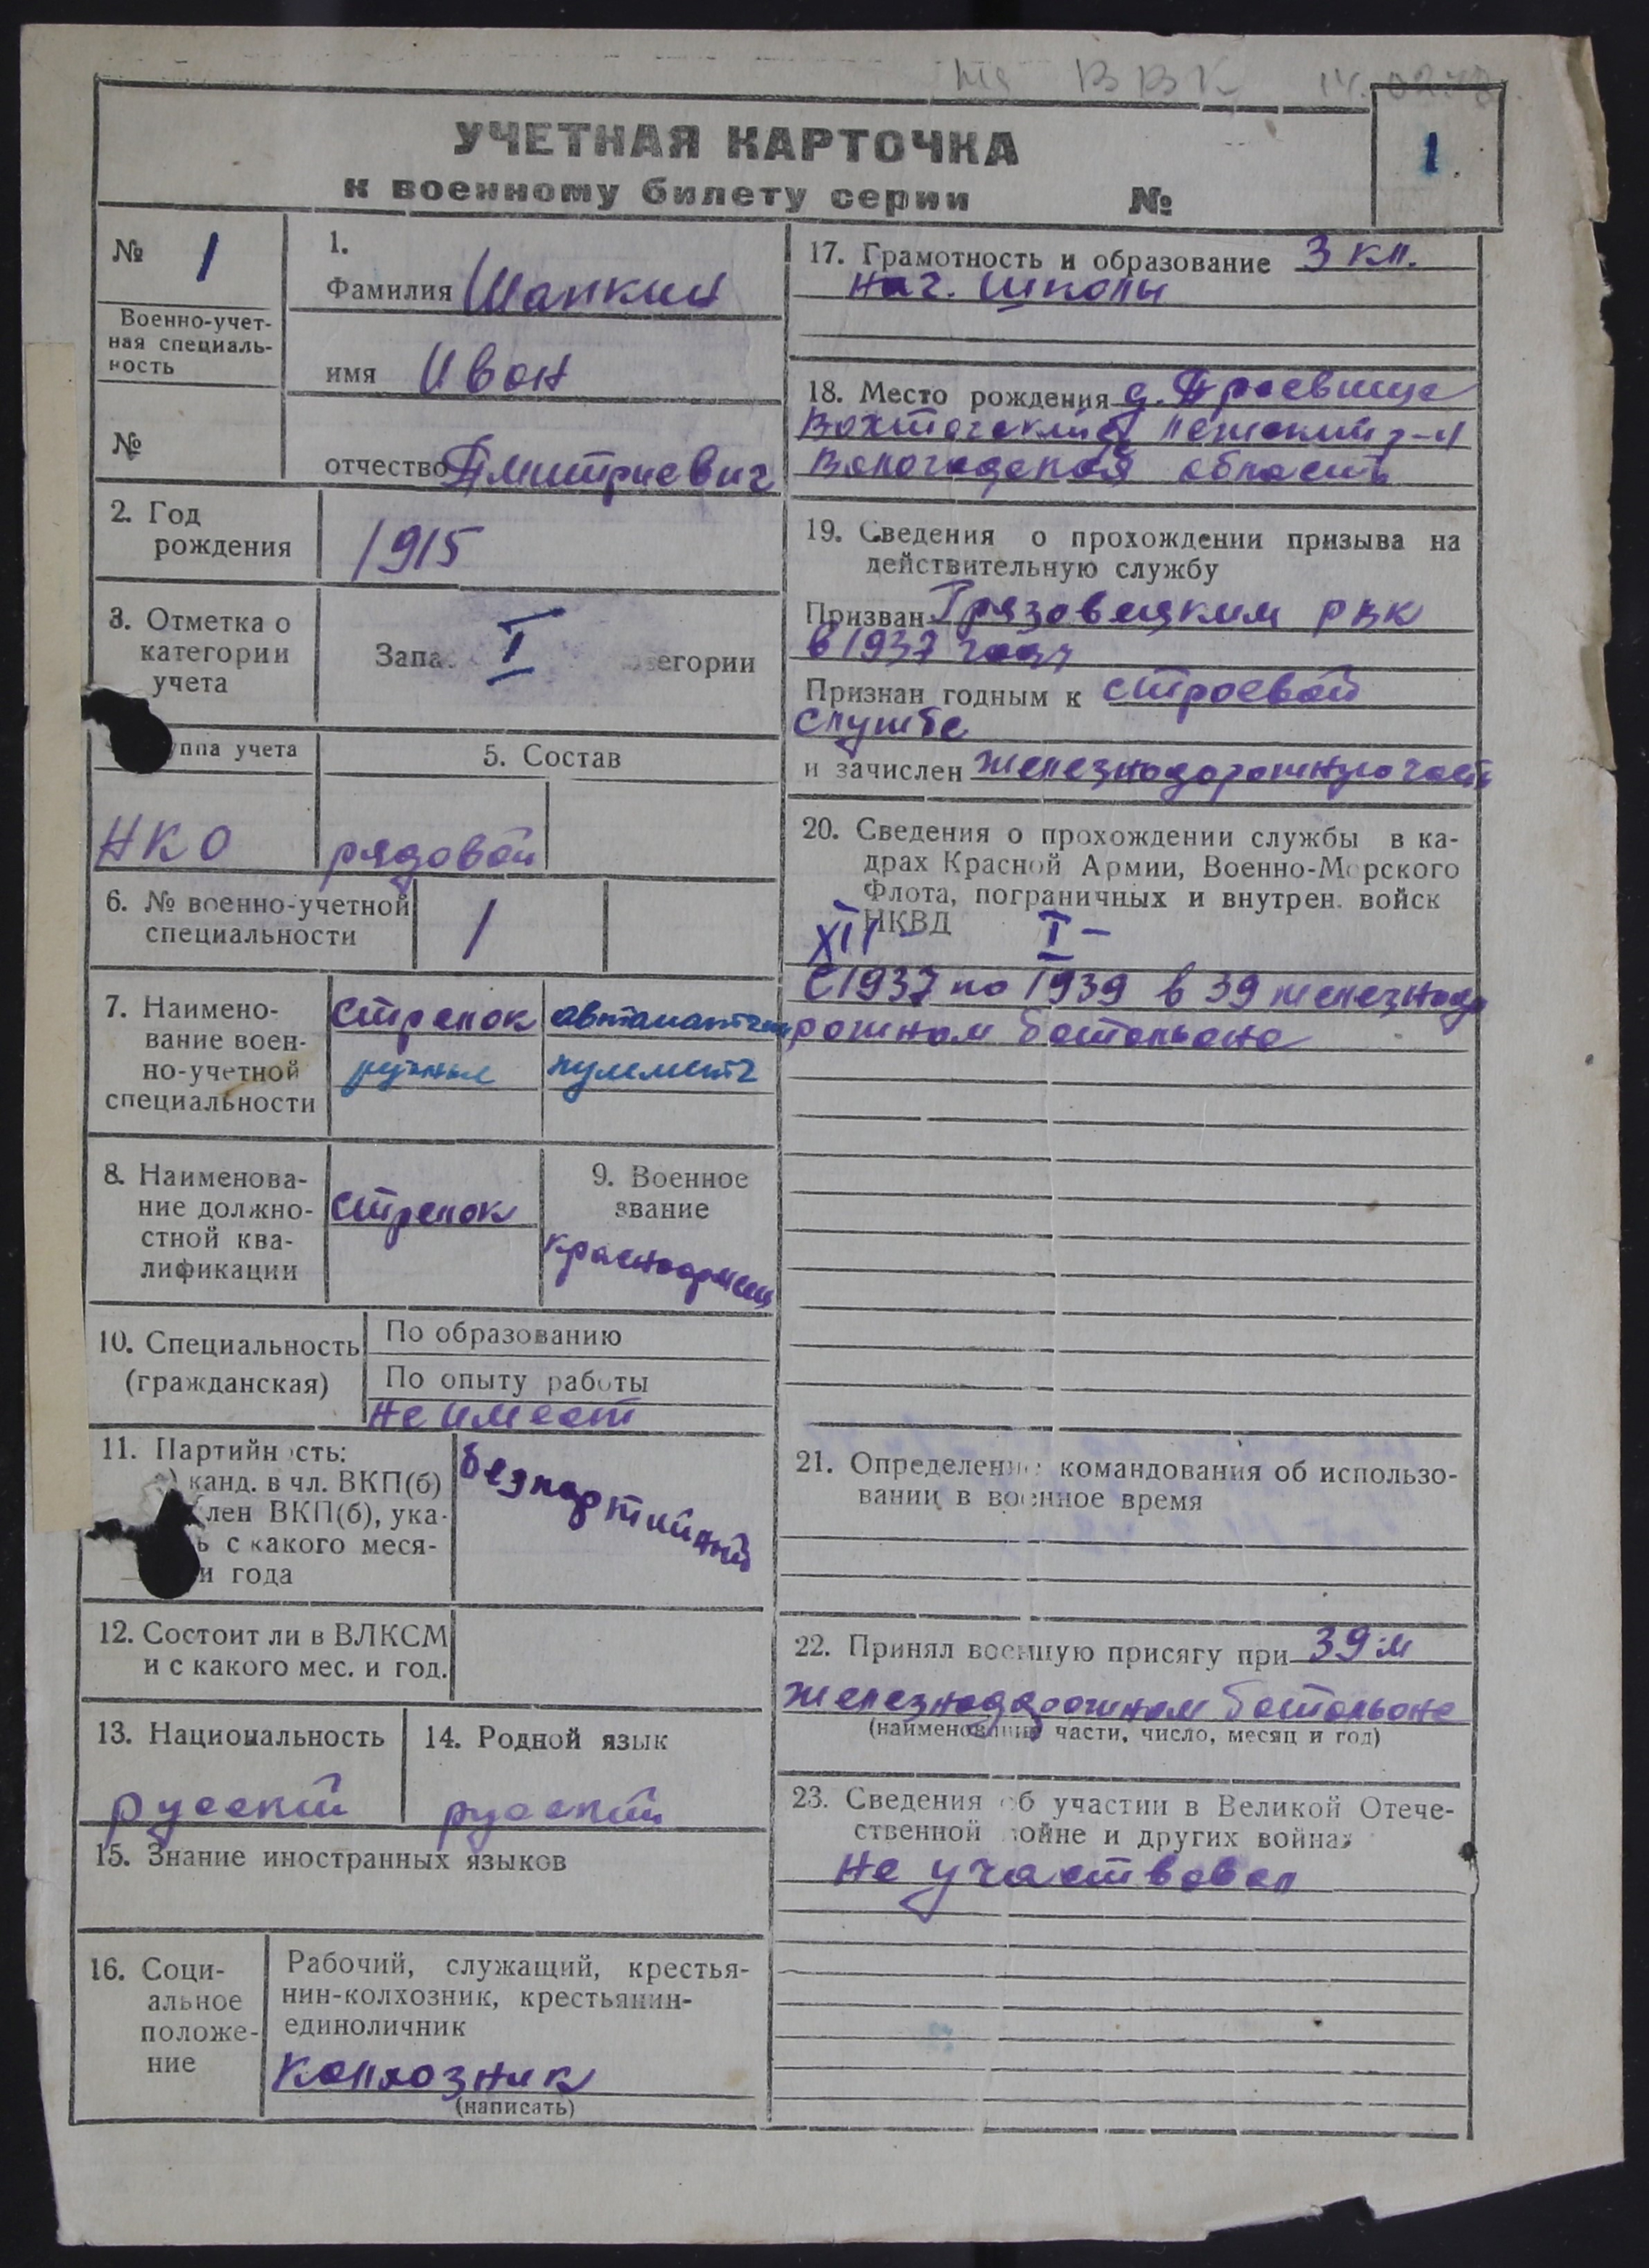 на ВВК
УЧЕТНАЯ КАРТОЧКА
1
к военному билету серии №
№ 1
Военно-учет-
ная специаль-
ность
№
1.
Фамилия Шапкин
имя Иван
отчество Дмитриевич
2. Год
рождения
1915
3. Отметка о
категории
учета
Запа I егории
ппа учета
НКО
5. Состав
рядовой
6. № военно-учетной
специальности
1
7. Наимено-
вание воен-
но-учетной
специальности
стрелок
ручные пулемет
8. Наименова-
ние должно-
стной ква-
лификации
стрелок
9. Военное
звание
красноармеец
10. Специальность
(гражданская)
По образованию
По опыту работы
не имеет
11. Партийн сть:
канд. в чл. ВКП(б)
лен ВКП(б), ука-
ь с какого меся-
и года
безпартийный
12. Состоит ли в ВЛКСМ
и с какого мес. и год.
13. Национальность
русский
14. Родной язык
русский
15. Знание иностранных языков
16. Соци-
альное
положе-
ние
Рабочий, служащий, крестья-
нин-колхозник, крестьянин-
единоличник
колхозник
(написать)
17. Грамотность и образование 3 кл.
нач. школы
18. Место рождения д.
р-н
Вологодская область
19. Сведения о прохождении призыва на
действительную службу
Призван Грязовецким РВК
в 1937 году
Признан годным к строевой
службе
и зачислен железнодорожную часть
20. Сведения о прохождении службы в ка-
драх Красной Армии, Военно-Морского
Флота, пограничных и внутрен. войск
НКВД
XII - I -
с 1937 по 1939 в 39 железнодо
рожном батальоне
21. Определение командования об использо-
вании в военное время
22. Принял военную присягу при 39-м
железнодорожном батальоне
(наименование части, число, месяц и год)
23. Сведения об участии в Великой Отече-
ственной войне и других войнах
не участвовал